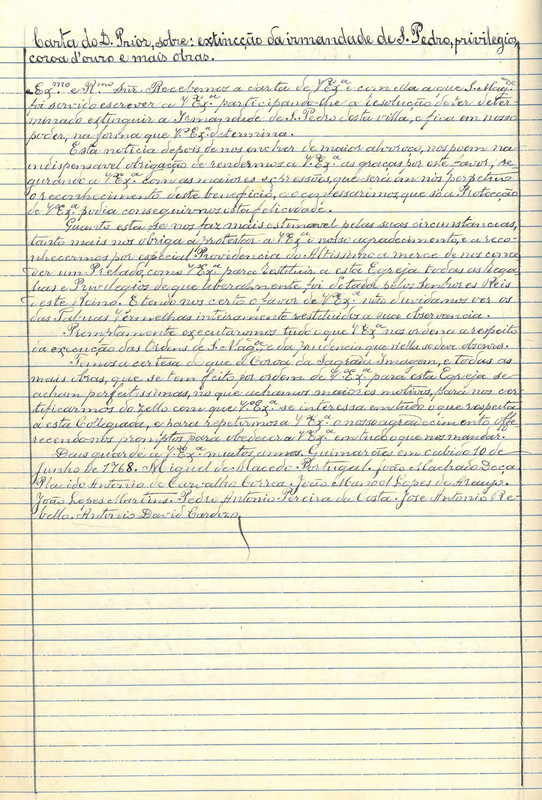 Carta do D. Prior, sobre: extincção da irmandade de S. Pedro, privilegios,
coroa d'ouro e mais obras.
Ex.mo e R.mo Snr. Recebemos a carta de V. Ex.a e com ella a que S. Mag.de
foi servido escrever a V. Ex.a participando-lhe a resolução de ter deter
minado extinguir a Irmandade de S. Pedro desta villa, e fica em nosso
poder, na forma que V. Ex.a determina.
Esta noticia depois de nos encher de maior alvoroço, nos poem na
indispensavel obrigação de rendermos a V. Ex.a as graças por este favor, se
gurando a V. Ex.a com as maiores expressões, que será em nós perpetuo
o reconhecimento deste beneficio, e confessaremos, que só a Protecção
de V. Ex.a podia conseguir-nos esta felicidade.
Quanto esta se nos faz mais estimavel pelas suas circunstancias,
tanto mais nos obriga a protestar a V. Ex.a o nosso agradecimento, e a reco-
nhecermos por especial Providencia do Altissimo a merce de nos conce
der um Prelado, como V. Ex.a para restituir a esta Egreja todas as rega
lias e Privilegios de que liberalmente foi dotada pelos Senhores Reis
deste Reino. E tendo nos certo o favor de V. Ex.a não duvidamos ver os
das Tabuas Vermelhas inteiramente restituidos a sua observancia.
Promptamente executaremos tudo o que V. Ex.a nos ordena a respeito
da execução das Ordens de S. Mag.e, e da prudencia que n'ellas se deve observar.
Temos a certesa de que a Coroa da Sagrada Imagem, e todas as
mais obras, que se tem feito por ordem de V. Ex.a para esta Egreja se
acham perfeitissimas, no que achamos maiores motivos, para nos cer
tificarmos do zello com que V. Ex.a se interessa em tudo o que respeita
a esta Collegiada, e para repetirmos a V. Ex.a o nosso agradecimento offe
recendo-nos promptos para obedecer a V. Ex.a em tudo o que nos mandar.
Deus guarde a V. Ex.a muitos annos. Guimarães em cabido 10 de
Junho de 1768. Miguel de Macedo Portugal. João Machado Deça
Placido Antonio de Carvalho Correa. João Manoel Lopes de Araujo.
João Lopes Martins. Pedro Antonio Pereira da Costa. José Antonio Re-
bello. Antonio David Cardozo.